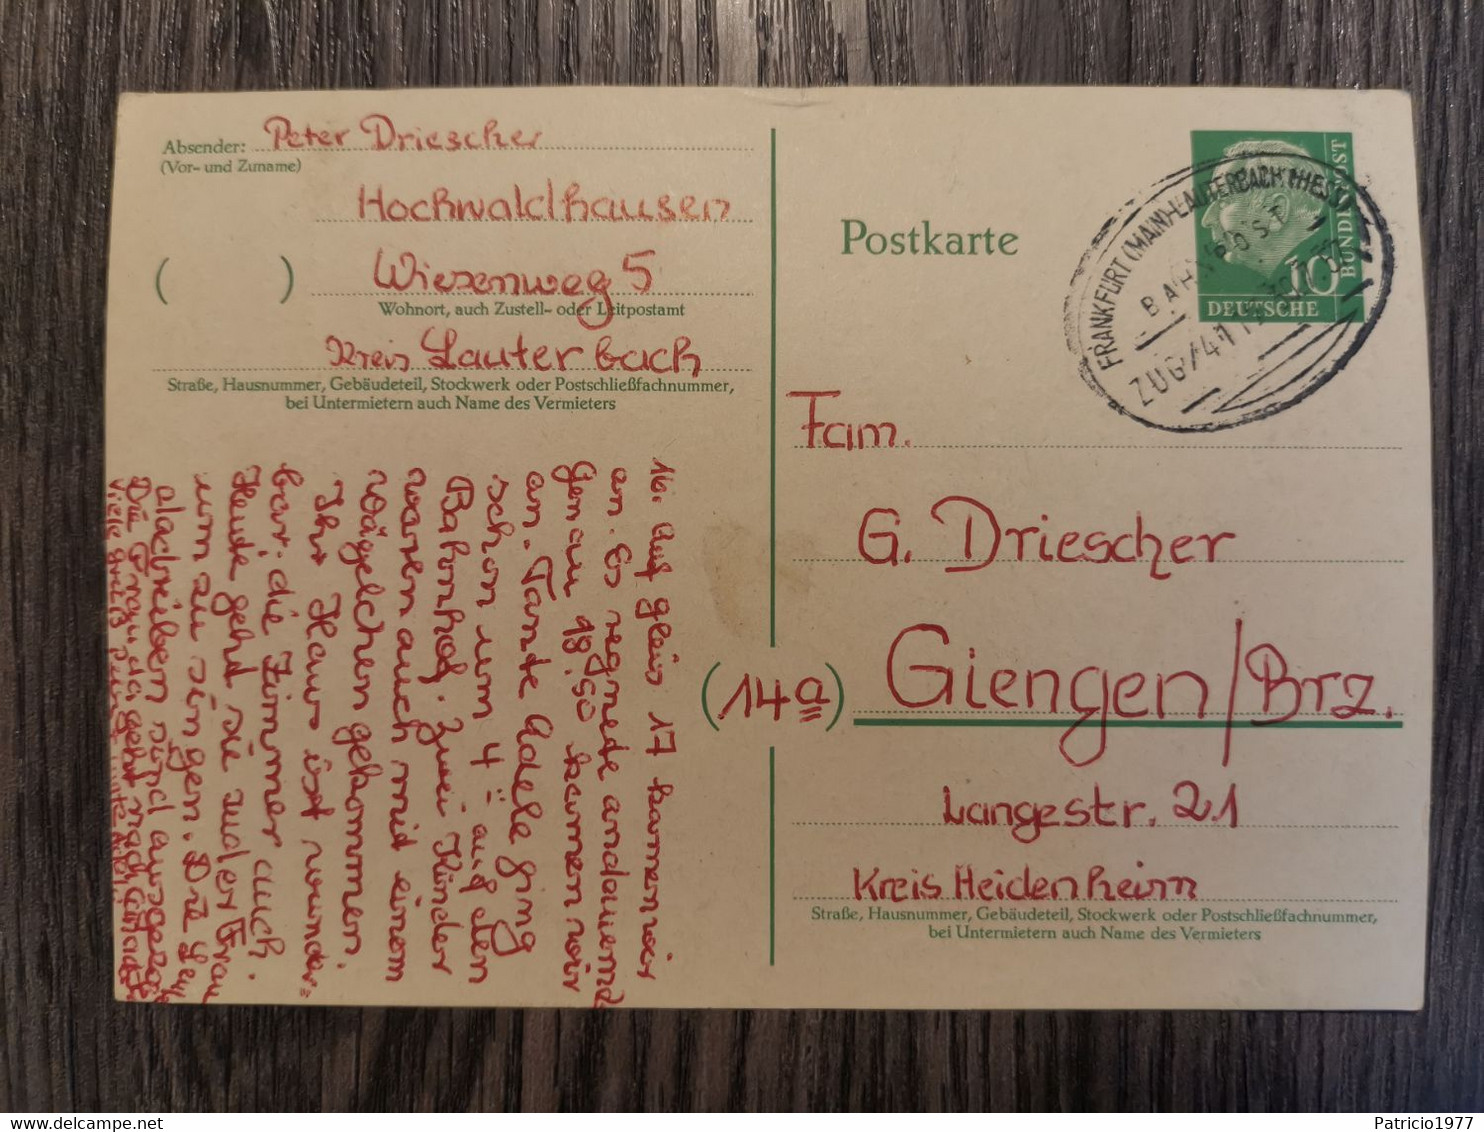 Absender: Peter Driescher
(Vor- und Zuname)
Hochwaldhausen
( ) Wiesenweg 5
Wohnort, auch Zustell- oder Leitpostamt
Kreis Lauterbach
Straße, Hausnummer, Gebäudeteil, Stockwerk oder Postschließfachnummer,
bei Untermietern auch Name des Vermieters
16. auf gleis 17 kamen wir
an. Es regnete andauernd
genau 18.50 kamen wir
an. Tante Adele ging
schon um 4 auf den
Bahnhof. Zwei Kinder
waren auch mit einem
Wägelchen gekommen.
Ihr Haus ist wunder=
bar. die Zimmer auch.
Heute geht sie zu der Frau
um zu singen. Die
alachrieben sind
Die Frau da geht nach
Viele grüß
Postkarte
FRANKFURT (MAIN)-LAUTERBACH (HESS)
BAHNPOST
ZUG
10
DEUTSCHE
BUNDESPOST
Fam.
G. Driescher
(14a) Giengen/Brz.
Langestr. 21
Kreis Heidenheim
Straße, Hausnummer, Gebäudeteil, Stockwerk oder Postschließfachnummer,
bei Untermietern auch Name des Vermieters
Patricio1977